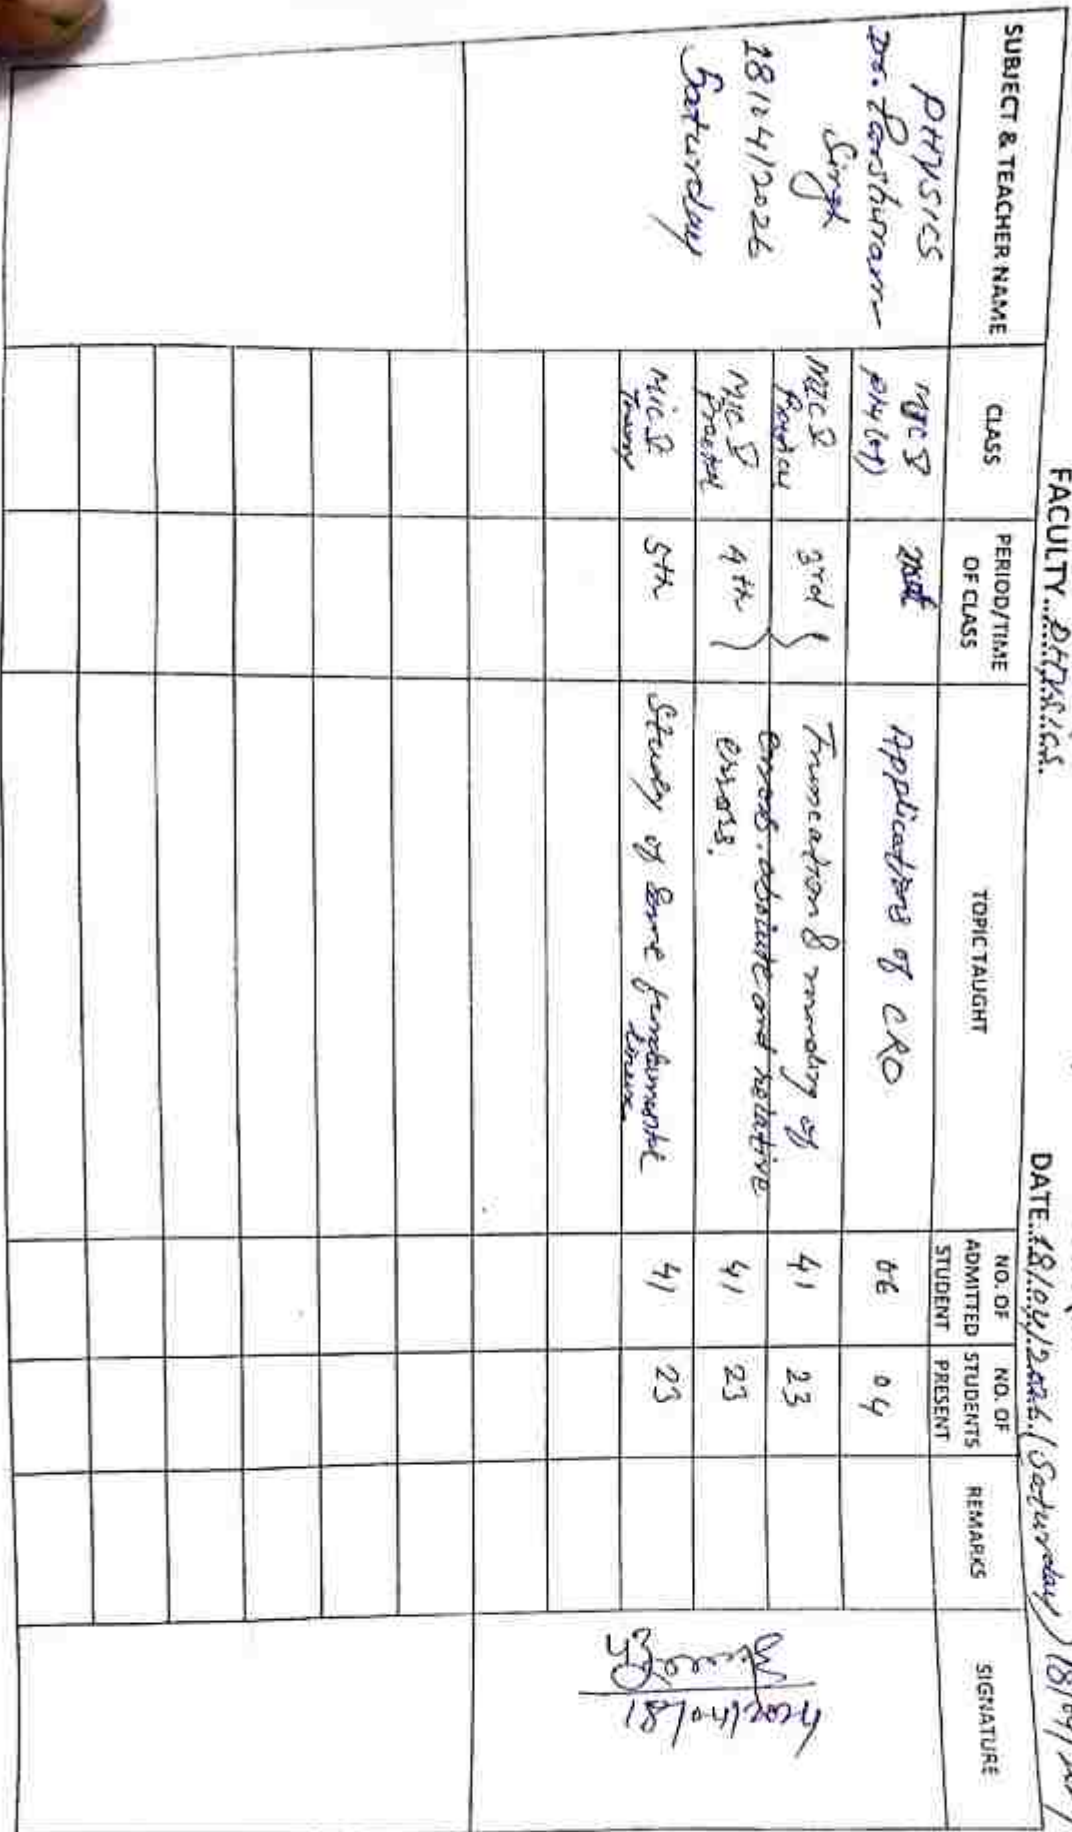 FACULTY..PHYSICS.
DATE..18/04/2026.(Saturday)
SUBJECT & TEACHER NAME
CLASS
PERIOD/TIME OF CLASS
TOPIC TAUGHT
NO. OF ADMITTED STUDENT
NO. OF STUDENTS PRESENT
REMARKS
SIGNATURE
PHYSICS
Dr. Parshuram
Singh
18/04/2026
Saturday
Applications of CRO
06
04
3rd
Truncation & rounding of
errors, absolute and relative
errors.
41
23
4th
41
23
5th
Study of some fundamental
41
23